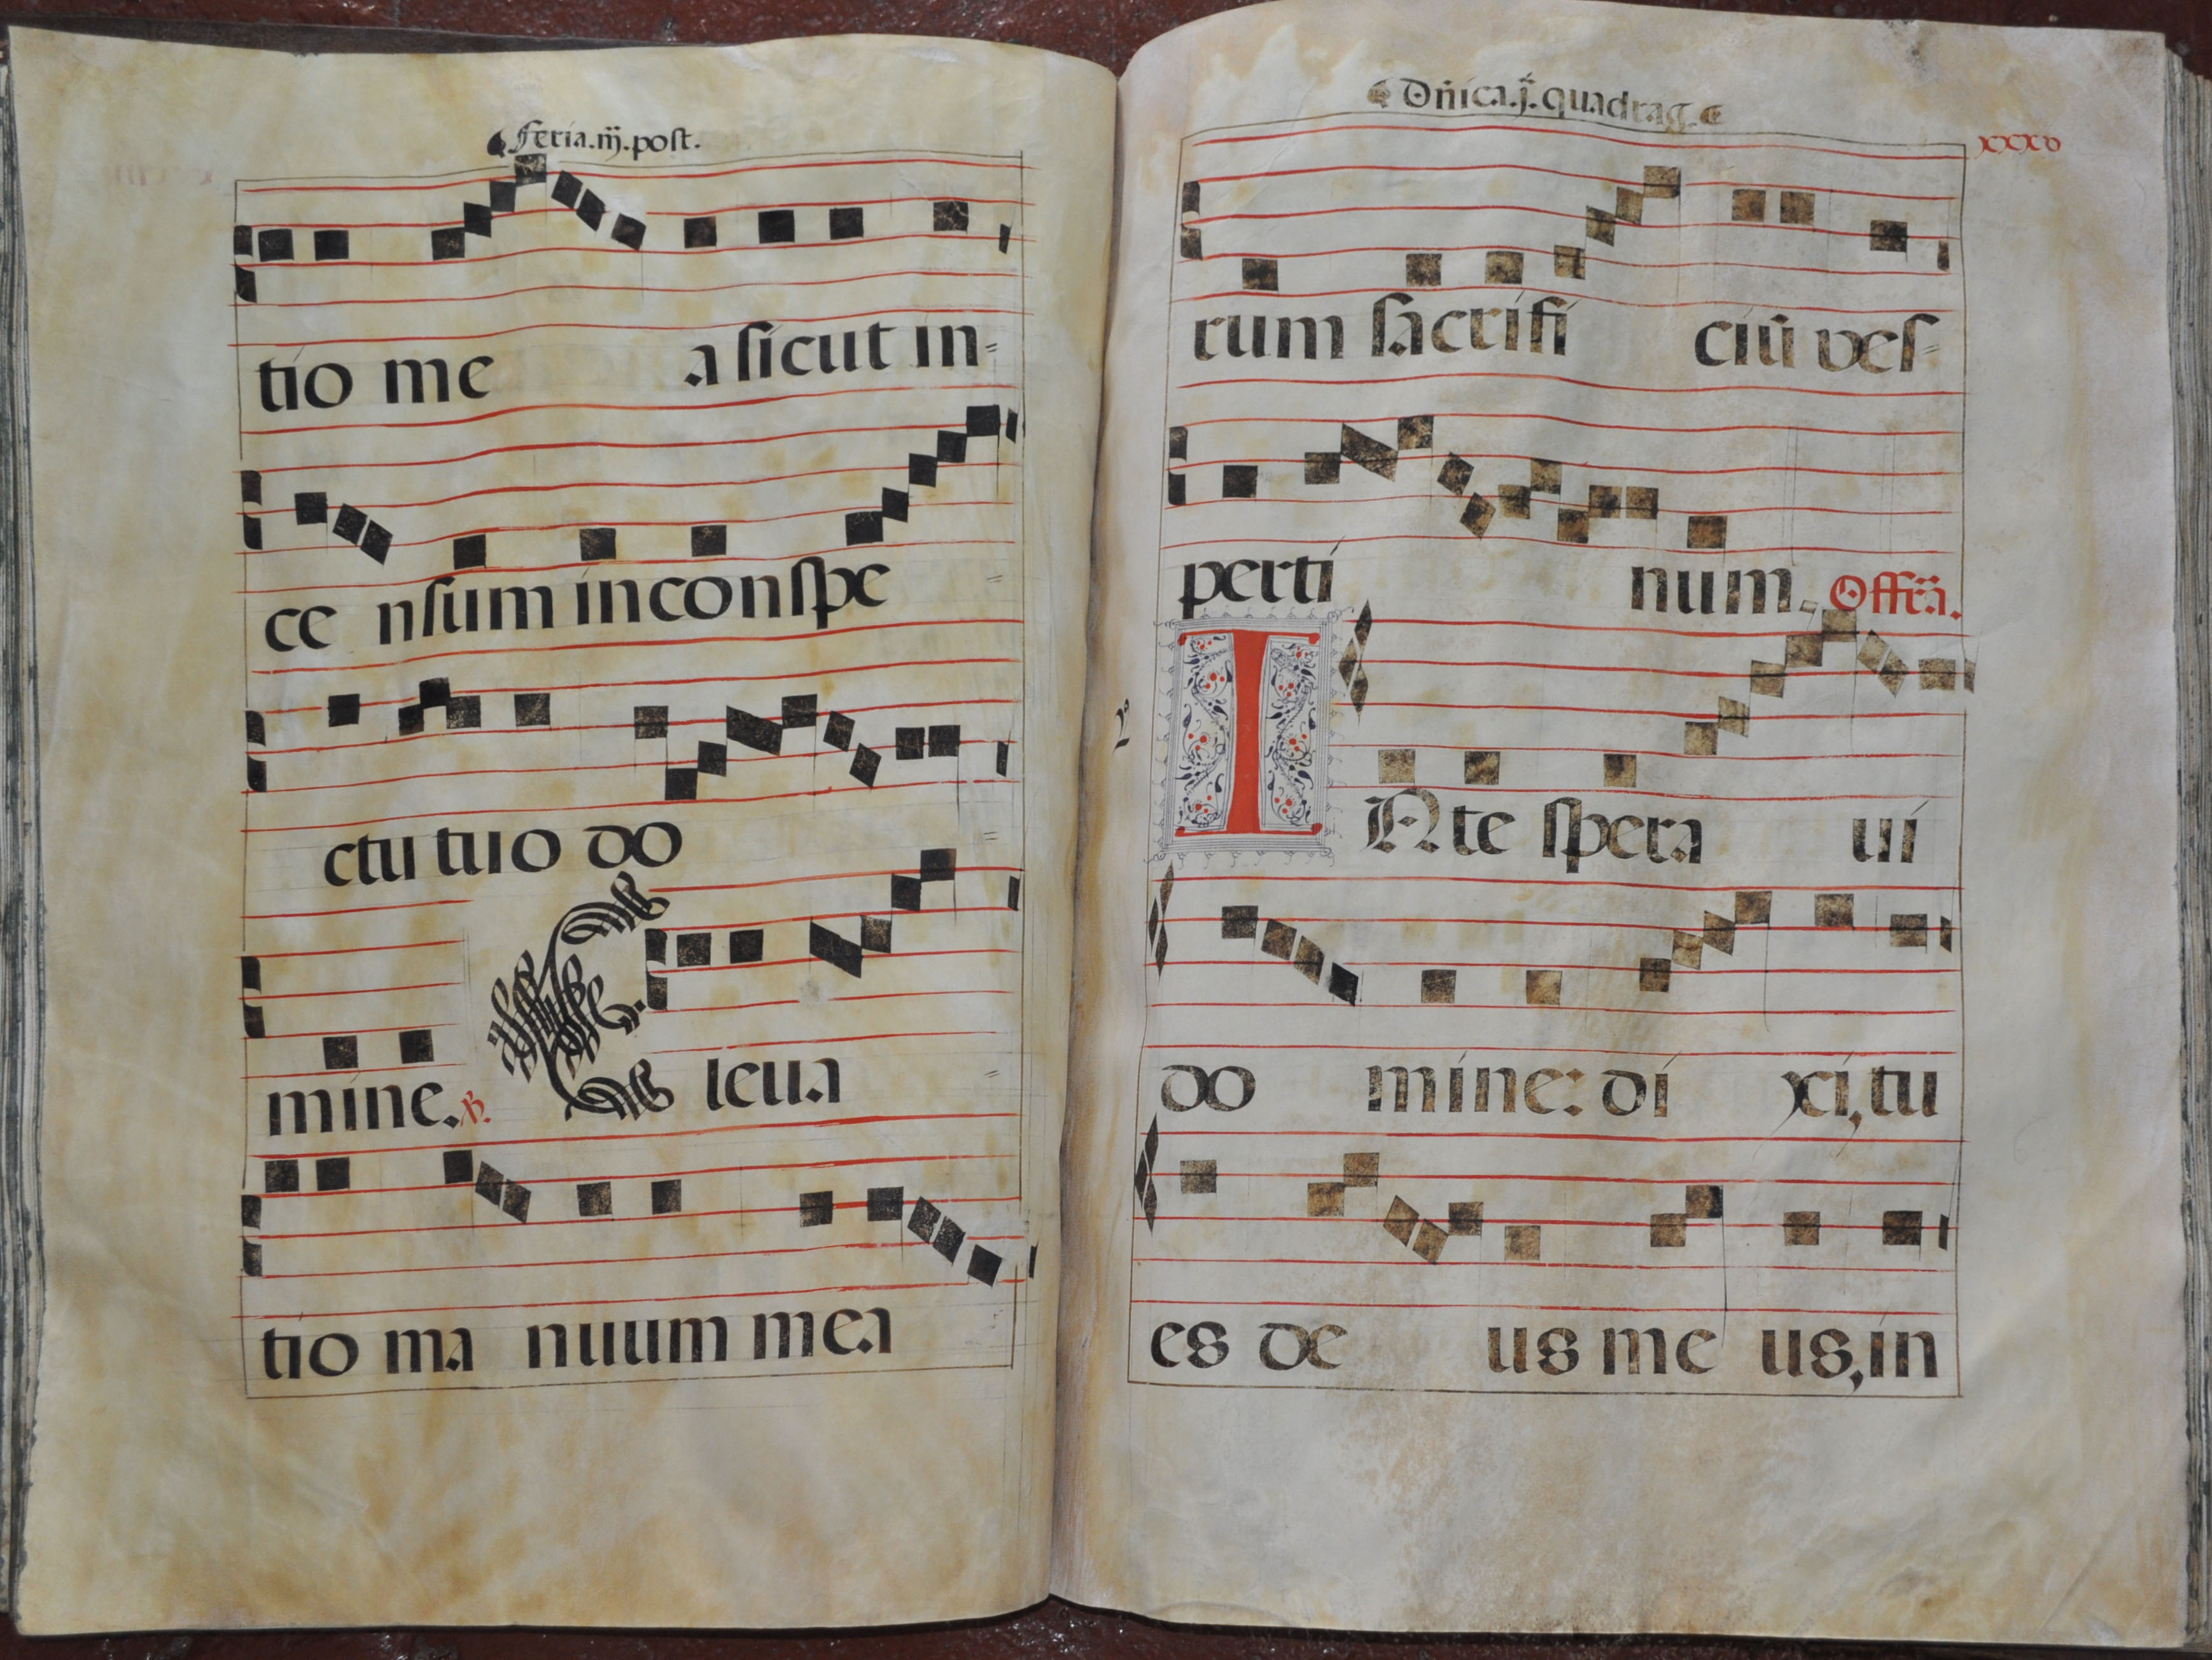 feria.iij.post.
tio me a sicut in=
ce nsum in conspe
ctu tuo do
mine. ℟. Eleua
tio ma nuum mea
Dñica.j.quadrag.
xxxv
rum sacrifi ciũ ves=
perti num. Offr̃a.
2ᵃ
INte spera ui
do mine: di xi, tu
es de us me us, in